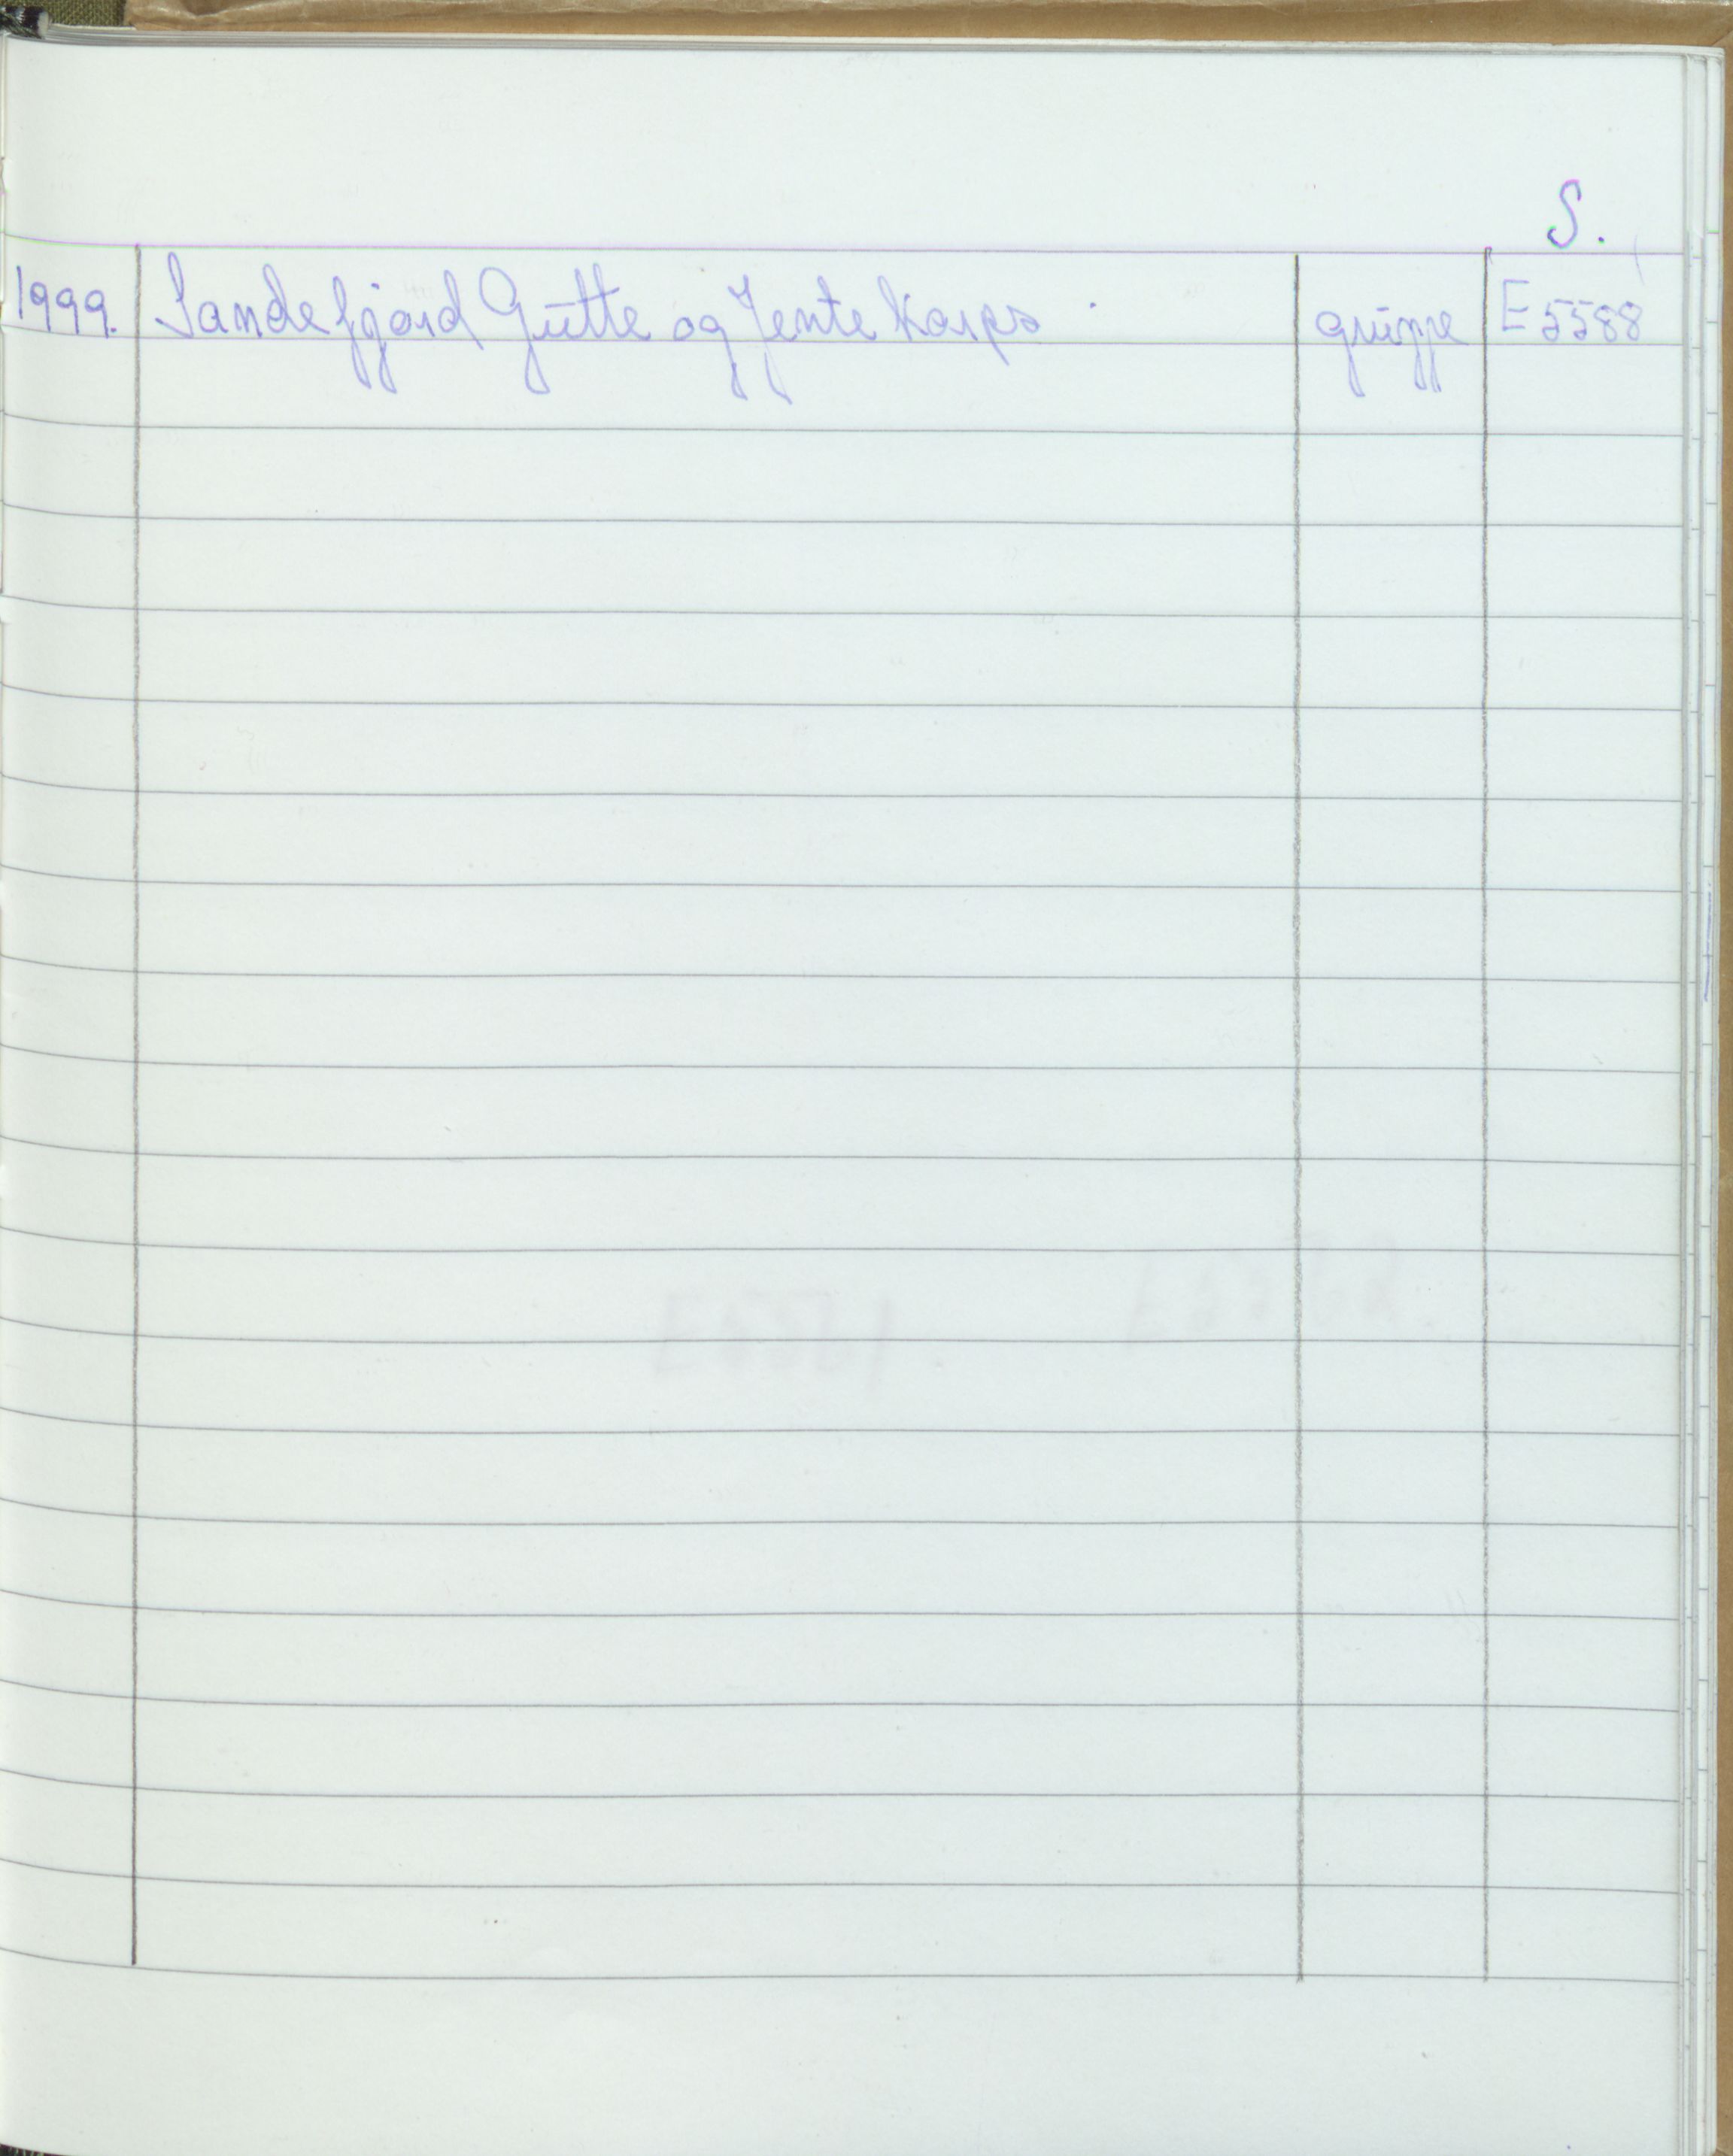 S.
1999. Sandefjord Gutte og Jente Korps gruppe E 5588